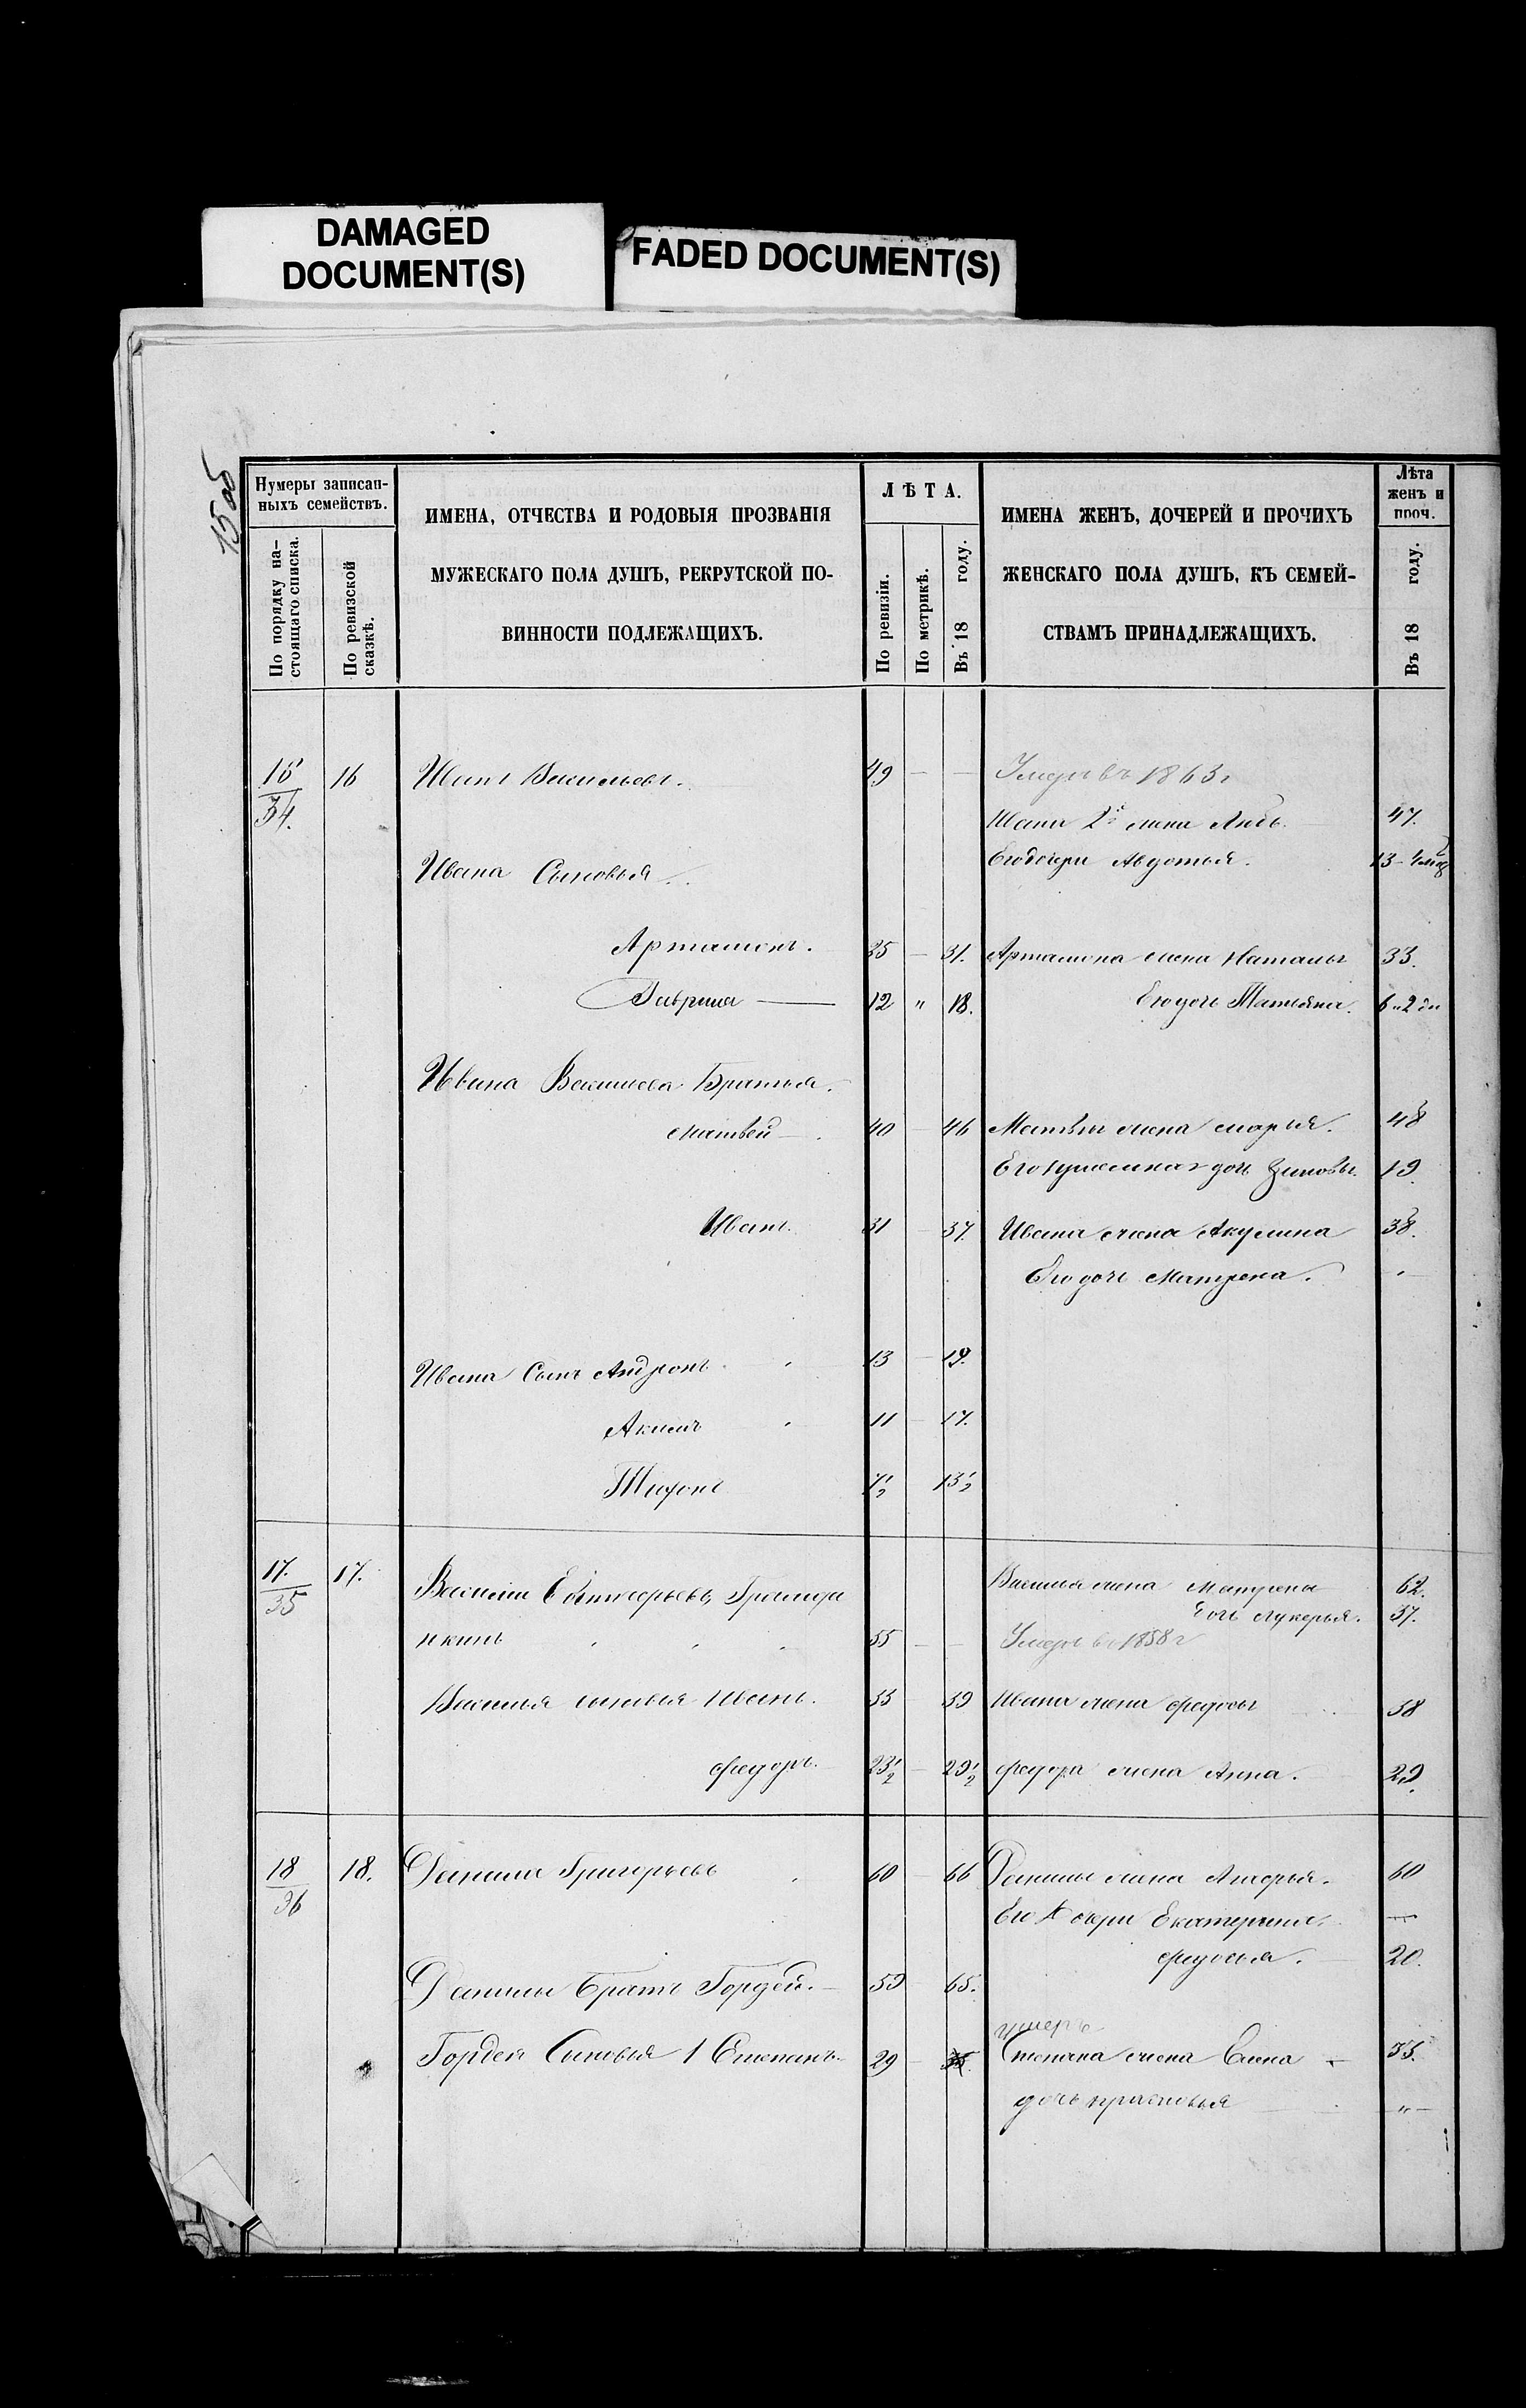 DAMAGED
DOCUMENT(S)
FADED DOCUMENT(S)
15 об
Нумеры записан-
ныхъ семействъ.
По порядку на-
стоящаго списка.
По ревизской
сказкѣ.
ИМЕНА, ОТЧЕСТВА И РОДОВЫЯ ПРОЗВАНІЯ
МУЖЕСКАГО ПОЛА ДУШЪ, РЕКРУТСКОЙ ПО-
ВИННОСТИ ПОДЛЕЖАЩИХЪ.
ЛѢТА.
По ревизіи.
По метрикѣ.
Въ 18 году.
ИМЕНА ЖЕНЪ, ДОЧЕРЕЙ И ПРОЧИХЪ
ЖЕНСКАГО ПОЛА ДУШЪ, КЪ СЕМЕЙ-
СТВАМЪ ПРИНАДЛЕЖАЩИХЪ.
Лѣта
женъ и
проч.
Въ 18 году.
16 16 Иванъ Васильевъ. 49 — — Умеръ въ 1863 г
34.
Ивана 2я жена 47.
Его дочери Авдотья. 13
Ивана Сыновья
Артамонъ. 25 — 31. Артамона жена Наталья 33.
Гаврила — 12 " 18. Его дочь Татьяна. 6
Ивана Васильева Братья.
Матвей — 40 — 46 Матвея жена Марья. 48
Его дочь Зиновья. 19.
Иванъ. 31 — 37. Ивана жена Акулина 38.
Его дочь Матрена. "
Ивана Сынъ Андронъ 13 — 19.
Акимъ 11 — 17.
Тихонъ 7½ 13½
17. 17. Василий Григорьевъ
35
Василья жена Матрена 62.
дочь Лукерья. 37.
55 — — Умеръ въ 1858 г
Василья сыновья Иванъ. 33 — 39 Ивана жена Федосья 38
Федоръ. 23½ — 29½ Федора жена Анна. 29.
18 18. Данила Григорьевъ 60 — 66 Данилы жена 60
36
Его дочери Екатерина. —
Федосья. 20.
Данилы братъ Гордей. — 59 65.
умеръ
Гордея Сыновья 1 Степанъ. 29 — 35. Степана жена Елена — 35.
дочь Прасковья — " —